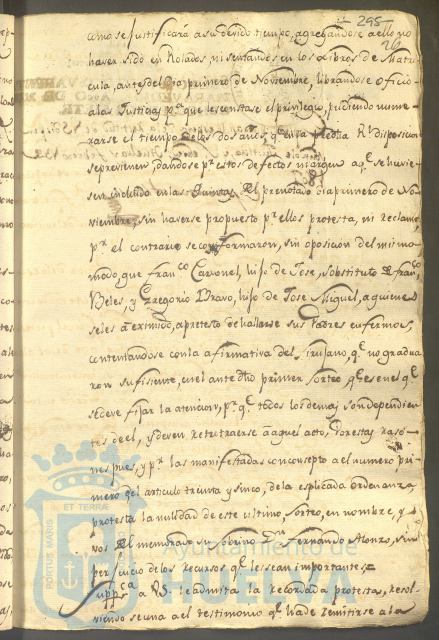 295
26
como se justificará a su devido tiempo, agregandose a ello no
haver sido en Rolados ni sentados en los Libros de Matri
cula, antes del dia primero de Noviembre, librandose oficio
a las Justicias pr. que les constase el privilegio, pudiendo nume
rarse el tiempo de los dos años, qe en la Rl. disposicion
se previenen, dandose pr. estos defectos margen a qe se huvie
sen incluido en las Quintas el prenotado dia primero de No
viembre, sin haverse propuesto pr. ellos protesta, ni reclamo,
pr. el contrario se conformaron, sin oposicion del mismo
modo, que Franco. Carvonel, hijo de Jose, sobstituto de Franco.
Veles, y Gregorio Bravo, hijo de Jose Miguel, a quienes
se les á eximido, a pretesto de hallarse sus Padres enfermos,
contentandose con la afirmativa del Sirujano, qe. no gradua
ron sufisiente, en el ante dho primer sorteo qe. es en el qe.
se deve fijar la atencion, pr. qe. todos los demas son dependien
tes de el, y deven retrotraerse a aquel acto, por estas raso
nes pues, y pr. las manifestadas con consepto a el numero pri
mero del articulo treinta y sinco, de la esplicada ordenanza,
protesta la nulidad de este ultimo sorteo, en nombre, y
vos del memorado su sobrino Dn. Fernando Alonzo, sin
perjuicio de los Recursos qe. le sean importantes =
Suppca. a VS. le admita la recordada protesta, resol
viendo se una a el testimonio qe. ha de remitirse a la
PORTUS MARIS ET TERRÆ
Ayuntamiento de
HUELVA